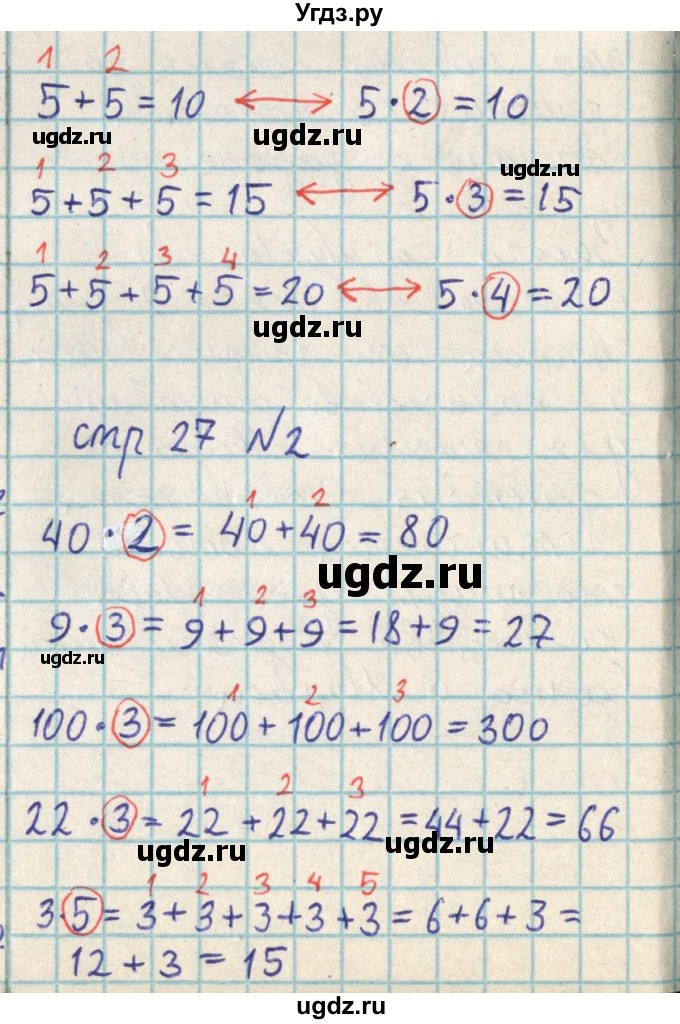 Угдз.ру
1 2
5 + 5 = 10 ⟷ 5 · 2 = 10
ugdz.ru ugdz.ru ugdz.ru
1 2 3
5 + 5 + 5 = 15 ⟷ 5 · 3 = 15
1 2 3 4
5 + 5 + 5 + 5 = 20 ⟷ 5 · 4 = 20
ugdz.ru
стр 27 №2
1 2
40 · 2 = 40 + 40 = 80
ugdz.ru
1 2 3
9 · 3 = 9 + 9 + 9 = 18 + 9 = 27
ugdz.ru
1 2 3
100 · 3 = 100 + 100 + 100 = 300
1 2 3
22 · 3 = 22 + 22 + 22 = 44 + 22 = 66
ugdz.ru ugdz.ru
1 2 3 4 5
3 · 5 = 3 + 3 + 3 + 3 + 3 = 6 + 6 + 3 =
12 + 3 = 15
ugdz.ru